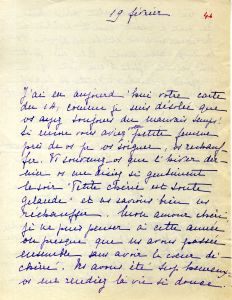 19 février
44
J'ai eu aujourd'hui votre carte
du 14, comme je suis désolée que
vs ayez toujours du mauvais temps!
Si encore vous aviez votre petite femme
près de vs pr vs soigner, vs réchauf-
fer. Vs souvenez-vs que l'hiver der-
nier vs me disiez si gentiment
le soir "Petite chérie est toute
gelaude" et vs saviez bien me
réchauffer. Mon amour chéri
je ne puis penser à cette année
ou presque que ns avons passée
ensemble sans avoir le cœur dé-
chiré. Ns avons été si heureux,
vs me rendiez la vie si douce.